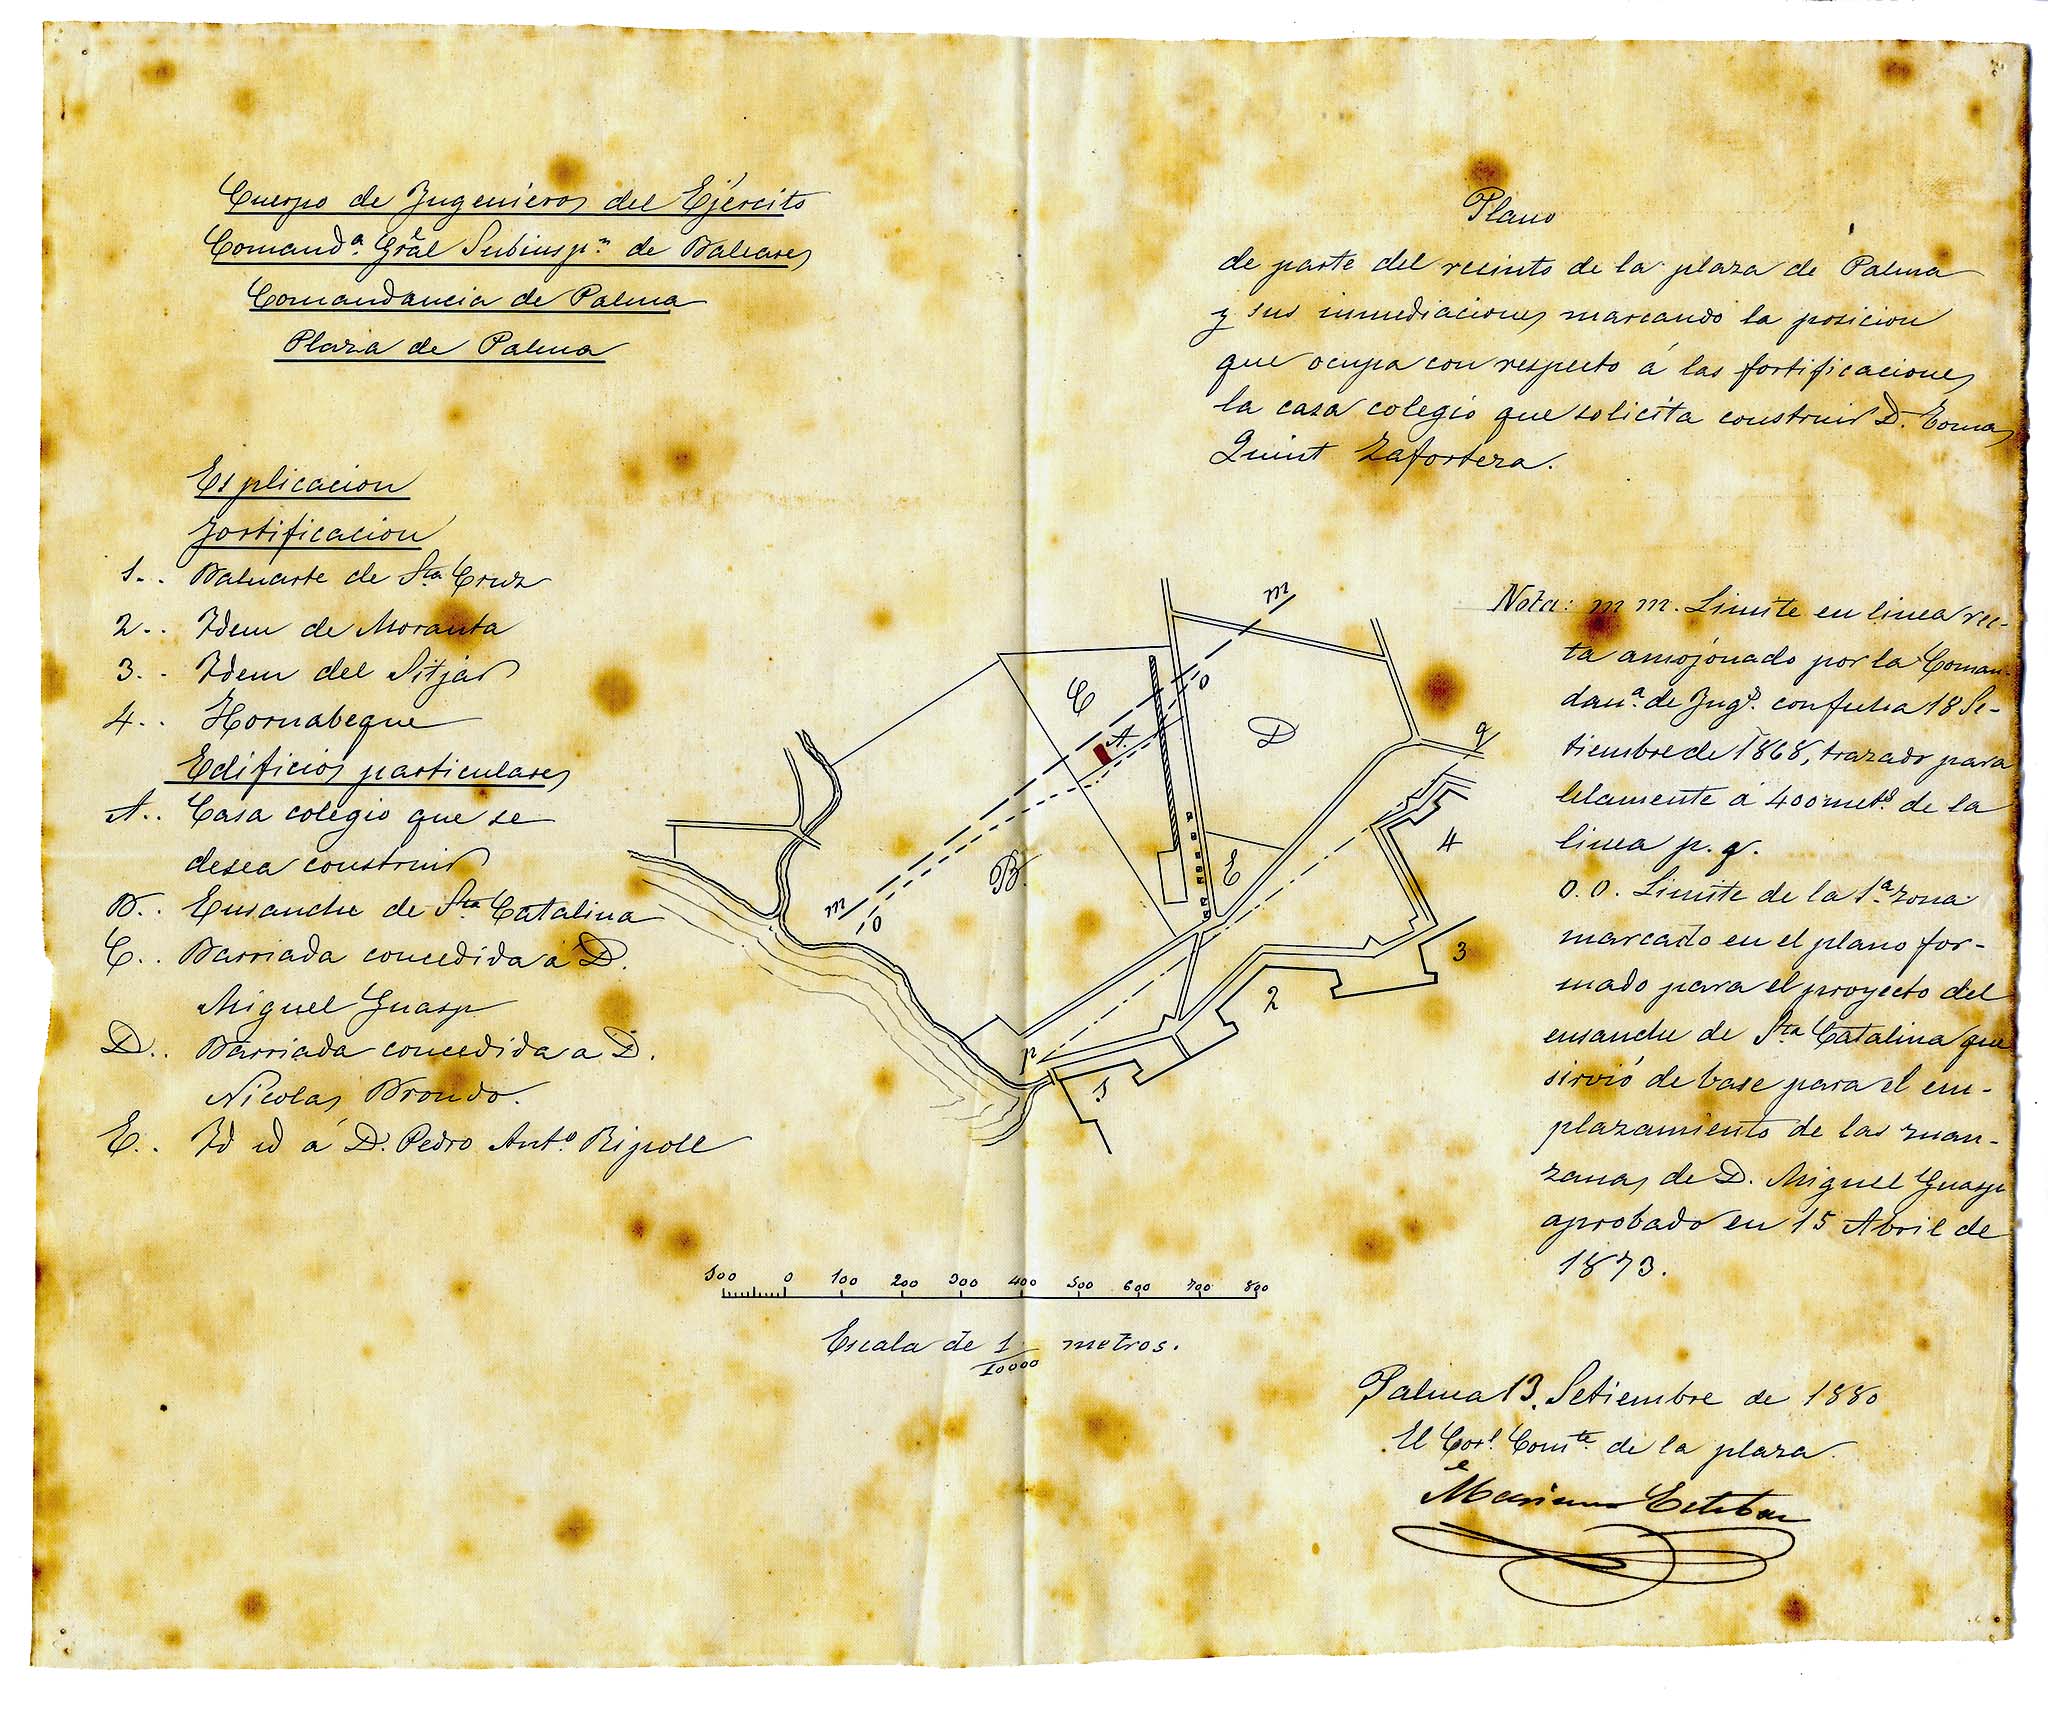 Cuerpo de Ingenieros del Ejército
Comandª Gral Subinspn de Baleares
Comandancia de Palma
Plaza de Palma
Esplicacion
Fortificacion
1.. Baluarte de Sta Cruz
2.. Idem de Moranta
3.. Idem del Sitjar
4.. Hornabeque
Edificios particulares
A.. Casa colegio que se
desea construir
B.. Ensanche de Sta Catalina
C.. Barriada concedida á D.
Miguel Guasp
D.. Barriada concedida a D.
Nicolas Brondo.
E.. Id id á D. Pedro Anto. Ripoll
Plano
de parte del recinto de la plaza de Palma
y sus inmediaciones marcando la posicion
que ocupa con respecto á las fortificaciones
la casa colegio que solicita construir D. Tomas
Quint Zaforteza.
Nota: m m. Limite en linea rec-
ta amojonado por la Coman-
danª. de Ings. con fecha 18 Se-
tiembre de 1868, trazado para
lelamente á 400 mets. de la
linea p. q.
o. o. Limite de la 1ª zona
marcado en el plano for-
mado para el proyecto del
ensanche de Sta Catalina que
sirvió de base para el em-
plazamiento de las man-
zanas de D. Miguel Guasp
aprobado en 15 Abril de
1873.
m
o
C
A.
D
q
4
B.
E
m
o
3
2
p
1
100 0 100 200 300 400 500 600 700 800
Escala de 1/10000 metros.
Palma 13. Setiembre de 1880
El Corl. Comte. de la plaza.
Mariano Esteban